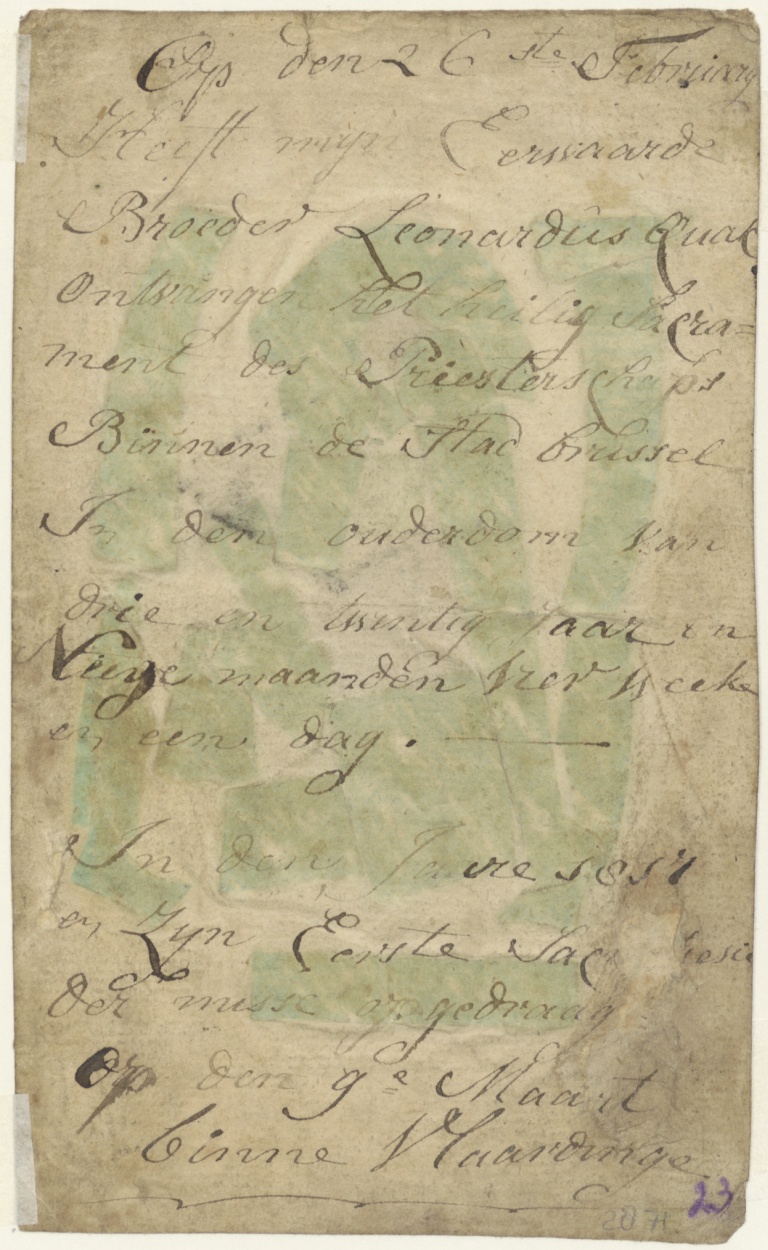 Op den 26 ste February
Heeft mijn Eerwaarde
Broeder Leonardus Quak
Ontvangen het heilig Sacra=
ment des Priesterschaps
Binnen de Stad brussel
In den ouderdom van
drie en twintig Jaar en
Neege maanden vier weeke
en een dag. —
In den Jaare
en Zyn Eerste
der misse opgedraag
Op den 9e Maart
binne Vlaardinge
23